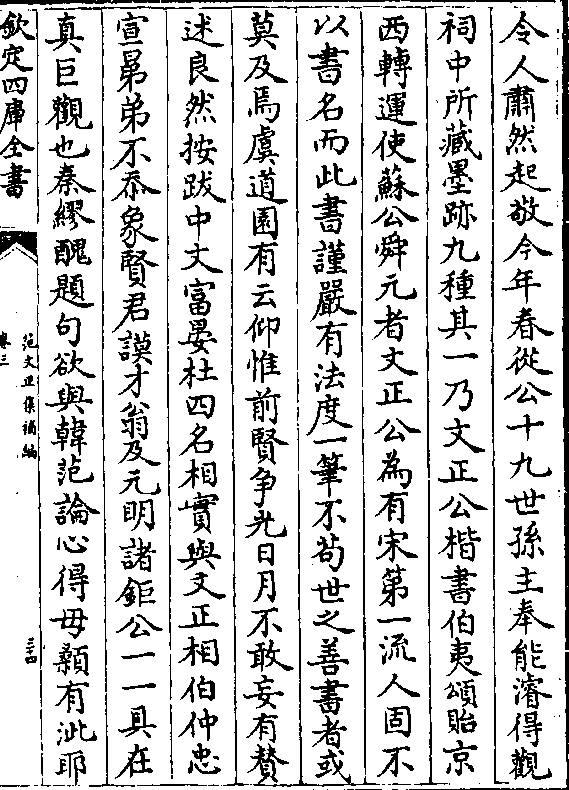 令人肅然起敬今年春從公十九世孫主奉能濬得觀
祠中所藏墨跡九種其一乃文正公楷書伯夷頌貽京
西轉運使蘇公舜元者文正公為有宋第一流人固不
以書名而此書謹嚴有法度一筆不茍世之善書者或
莫及焉虞道園有云仰惟前賢争光日月不敢妄有賛
述良然按跋中文富晏杜四名相實與文正相伯仲忠
宣昴弟不忝象賢君謨才翁及元明諸鉅公一一具在
真巨觀也秦繆醜題句欲與韓范論心得毋顙有泚耶
欽定四庫全書
范文正集補編
卷三
三四